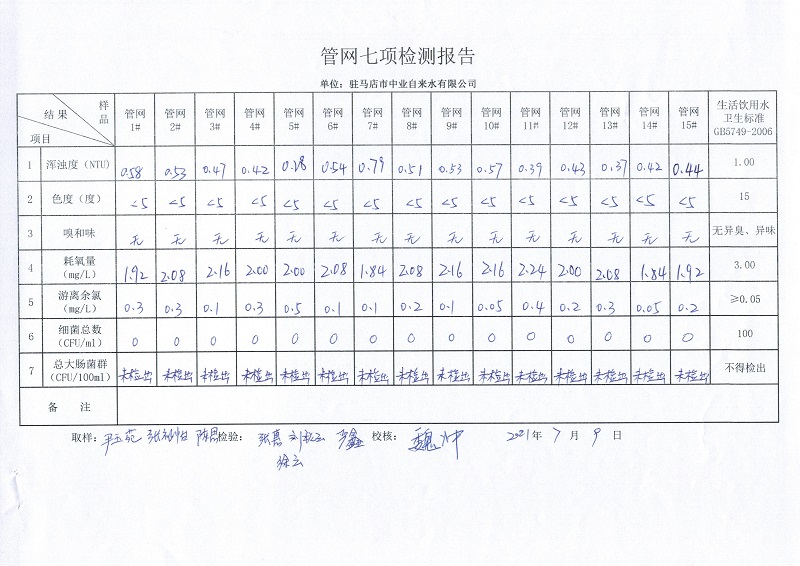 管网七项检测报告
单位：驻马店市中业自来水有限公司
结果 样品 项目 管网1# 管网2# 管网3# 管网4# 管网5# 管网6# 管网7# 管网8# 管网9# 管网10# 管网11# 管网12# 管网13# 管网14# 管网15# 生活饮用水卫生标准GB5749-2006
1 浑浊度（NTU) 0.58 0.53 0.47 0.42 0.54 0.79 0.51 0.53 0.57 0.39 0.43 0.37 0.42 0.44 1.00
2 色度（度） <5 <5 <5 <5 <5 <5 <5 <5 <5 <5 <5 <5 <5 <5 <5 15
3 嗅和味 无 无 无 无 无 无 无 无 无 无 无 无 无 无 无 无异臭、异味
4 耗氧量（mg/L） 1.92 2.08 2.16 2.00 2.00 2.08 1.84 2.08 2.16 2.16 2.24 2.00 2.08 1.84 1.92 3.00
5 游离余氯（mg/L） 0.3 0.3 0.1 0.3 0.5 0.1 0.1 0.2 0.1 0.05 0.4 0.2 0.3 0.05 0.2 ≥0.05
6 细菌总数（CFU/ml） 0 0 0 0 0 0 0 0 0 0 0 0 0 0 0 100
7 总大肠菌群（CFU/100ml） 未检出 未检出 未检出 未检出 未检出 未检出 未检出 未检出 未检出 未检出 未检出 未检出 未检出 未检出 未检出 不得检出
备 注
取样： 检验： 校核： 2021年 7 月 9 日
徐云